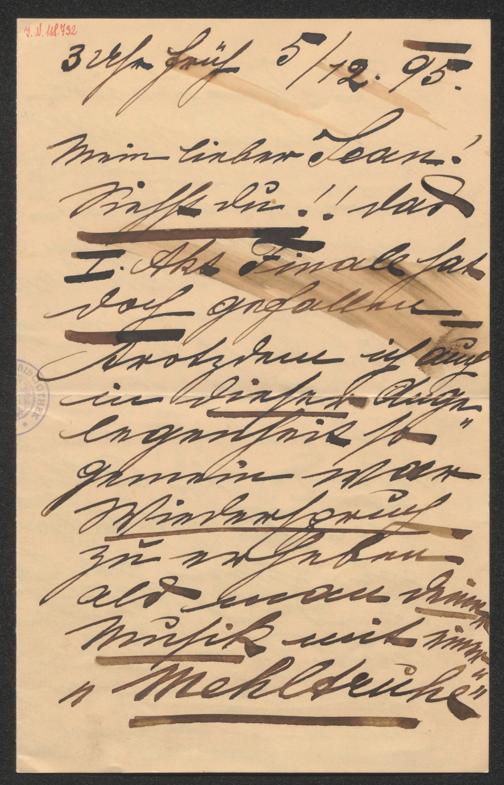 I. N. 118.732
3 Uhr früh 5/12. 95.
Mein lieber Jean!
Siehst du!! das
I. Akt Finale hat
doch gefallen
trotzdem ich auch
in dieser Ange
legenheit so
gemein war
Wiederspruch
zu erheben
als man deine
Musik mit einer
"Mehltruhe"